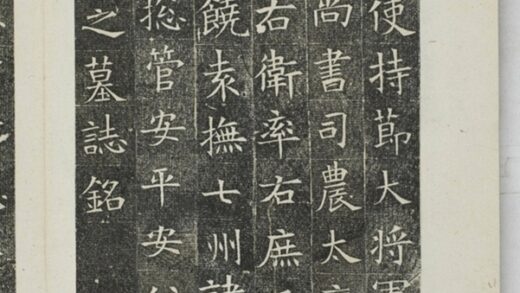 使持莭大将軍
尚書司農太
右衛率右庶
饒袁撫七州諸
捴管安平安
之墓誌銘